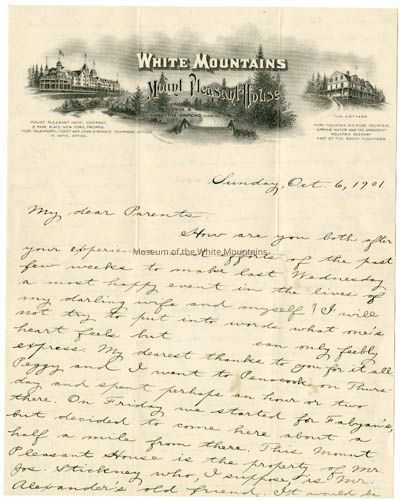 WHITE MOUNTAINS
Mount Pleasant House
MOUNT PLEASANT HOTEL COMPANY,
3 PARK PLACE, NEW YORK, PROPRS.
POST, TELEGRAPH, TICKET AND LONG DISTANCE TELEPHONE OFFICES
IN HOTEL OFFICE.
THE COTTAGE
PURE MOUNTAIN AIR, PURE MOUNTAIN
SPRING WATER AND THE GRANDEST
MOUNTAIN SCENERY
EAST OF THE ROCKY MOUNTAINS.
Sunday, Oct. 6, 1901
My dear Parents.
How are you both after
your experience of the past
Museum of the White Mountains
few weeks to make last Wednesday
a most happy event in the lives of
my darling wife and myself? I will
not try to put into words what one's
heart feels but can only feebly
express. My dearest thanks to you for it all.
Peggy and I went to Penacook on Thurs-
day and spent perhaps an hour or two
there. On Friday we started for Fabyan's,
but decided to come here about a
half a mile from there. This Mount
Pleasant House is the property of Mr.
Jos. Stickney who, I suppose, is Mr.
Alexander's old friend. It would be